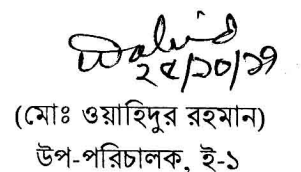 ২৫/১০/১৭
(মোঃ ওয়াহিদুর রহমান)
উপ-পরিচালক, ই-১